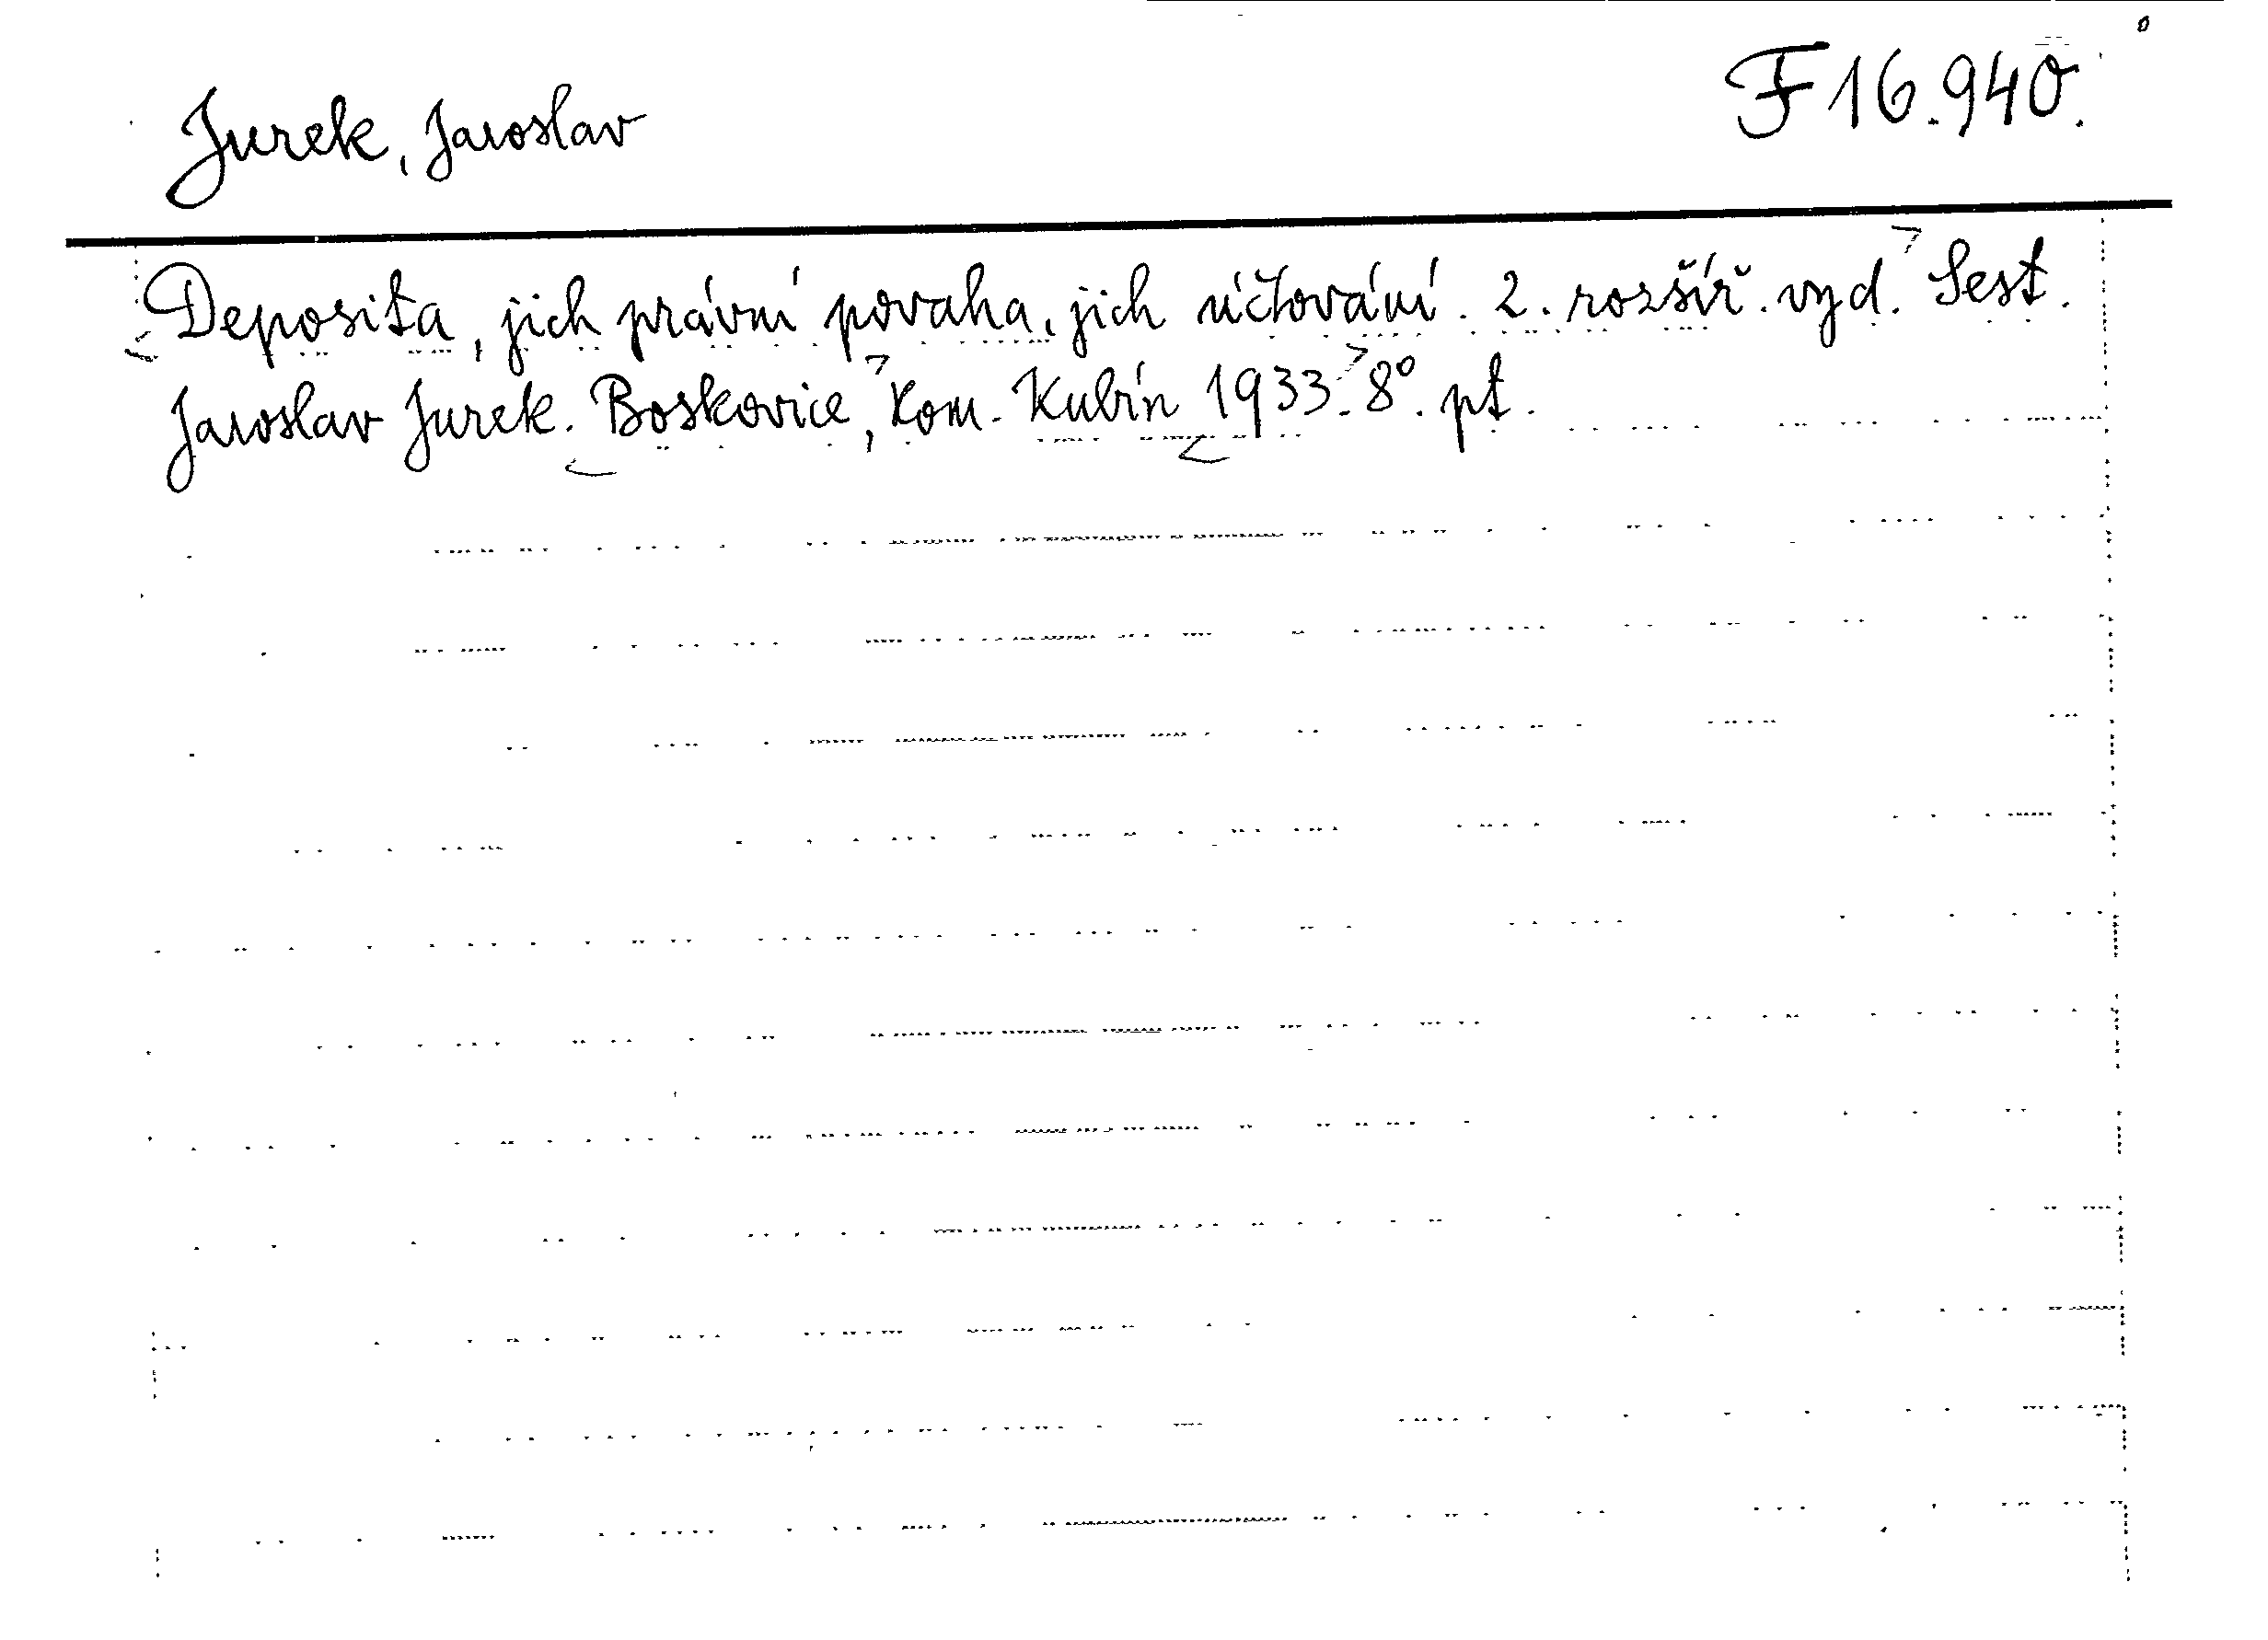 Jurek, Jaroslav
F 16.940.
Deposita, jich právní povaha, jich účtování. 2. rozšíř. vyd. Sest.
Jaroslav Jurek. Boskovice, Kom. Kubín 1933. 8°. pt.